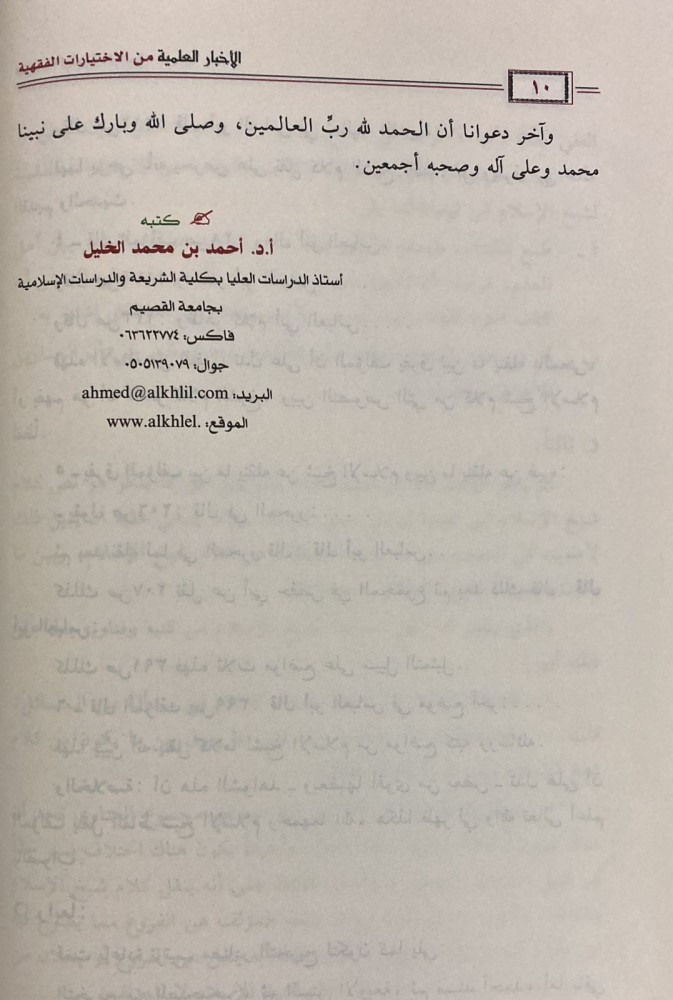 الأخبار العلمية من الاختيارات الفقهية
١٠
وآخر دعوانا أن الحمد لله ربِّ العالمين، وصلى الله وبارك على نبينا
محمد وعلى آله وصحبه أجمعين.
كتبه
أ.د. أحمد بن محمد الخليل
أستاذ الدراسات العليا بكلية الشريعة والدراسات الإسلامية
بجامعة القصيم
فاكس: ٠٦٣٦٢٢٧٧٤
جوال: ٠٥٠٥١٣٩٠٧٩
البريد: ahmed@alkhlil.com
الموقع: www.alkhlel.